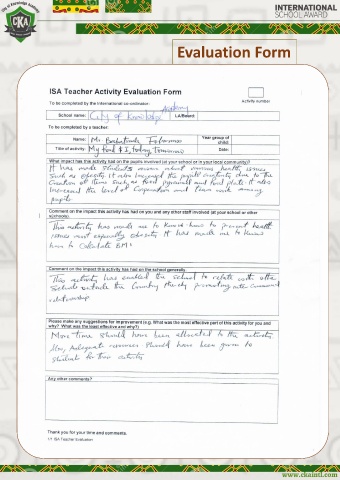 City of Knowledge Academy
CKA
INTERNATIONAL
SCHOOL AWARD
Evaluation Form
ISA Teacher Activity Evaluation Form
To be completed by the international co-ordinator:
Activity number
School name: City of Knowledge Academy LA/Board:
To be completed by a teacher:
Name: Mr Folorunso
Year group of child:
Title of activity: My food & I, today Tomorrow
Date:
What impact has this activity had on the pupils involved (at school or in your local community)?
It has made students aware about various health issues
Such as obesity. It also increased the pupils creativity due to the
Creation of items such as food pyramid and food plate. It also
increased the level of Cooperation and Team work among
pupils
Comment on the impact this activity had on you and any other staff involved (at your school or other school(s).
This activity has made me to know how to prevent health
issues most especially obesity. It has made me to know
how to Calculate BMI
Comment on the impact this activity has had on the school generally.
This activity has enabled the school to relate with other
Schools outside the Country thereby promoting inter command
relationship
Please make any suggestions for improvement (e.g. What was the most effective part of this activity for you and
why? What was the least effective and why?)
More time should have been allocated to the activity.
Also, Adequate resources should have been given to
Students for their activity
Any other comments?
Thank you for your time and comments.
ISA Teacher Evaluation
www.ckaintl.com